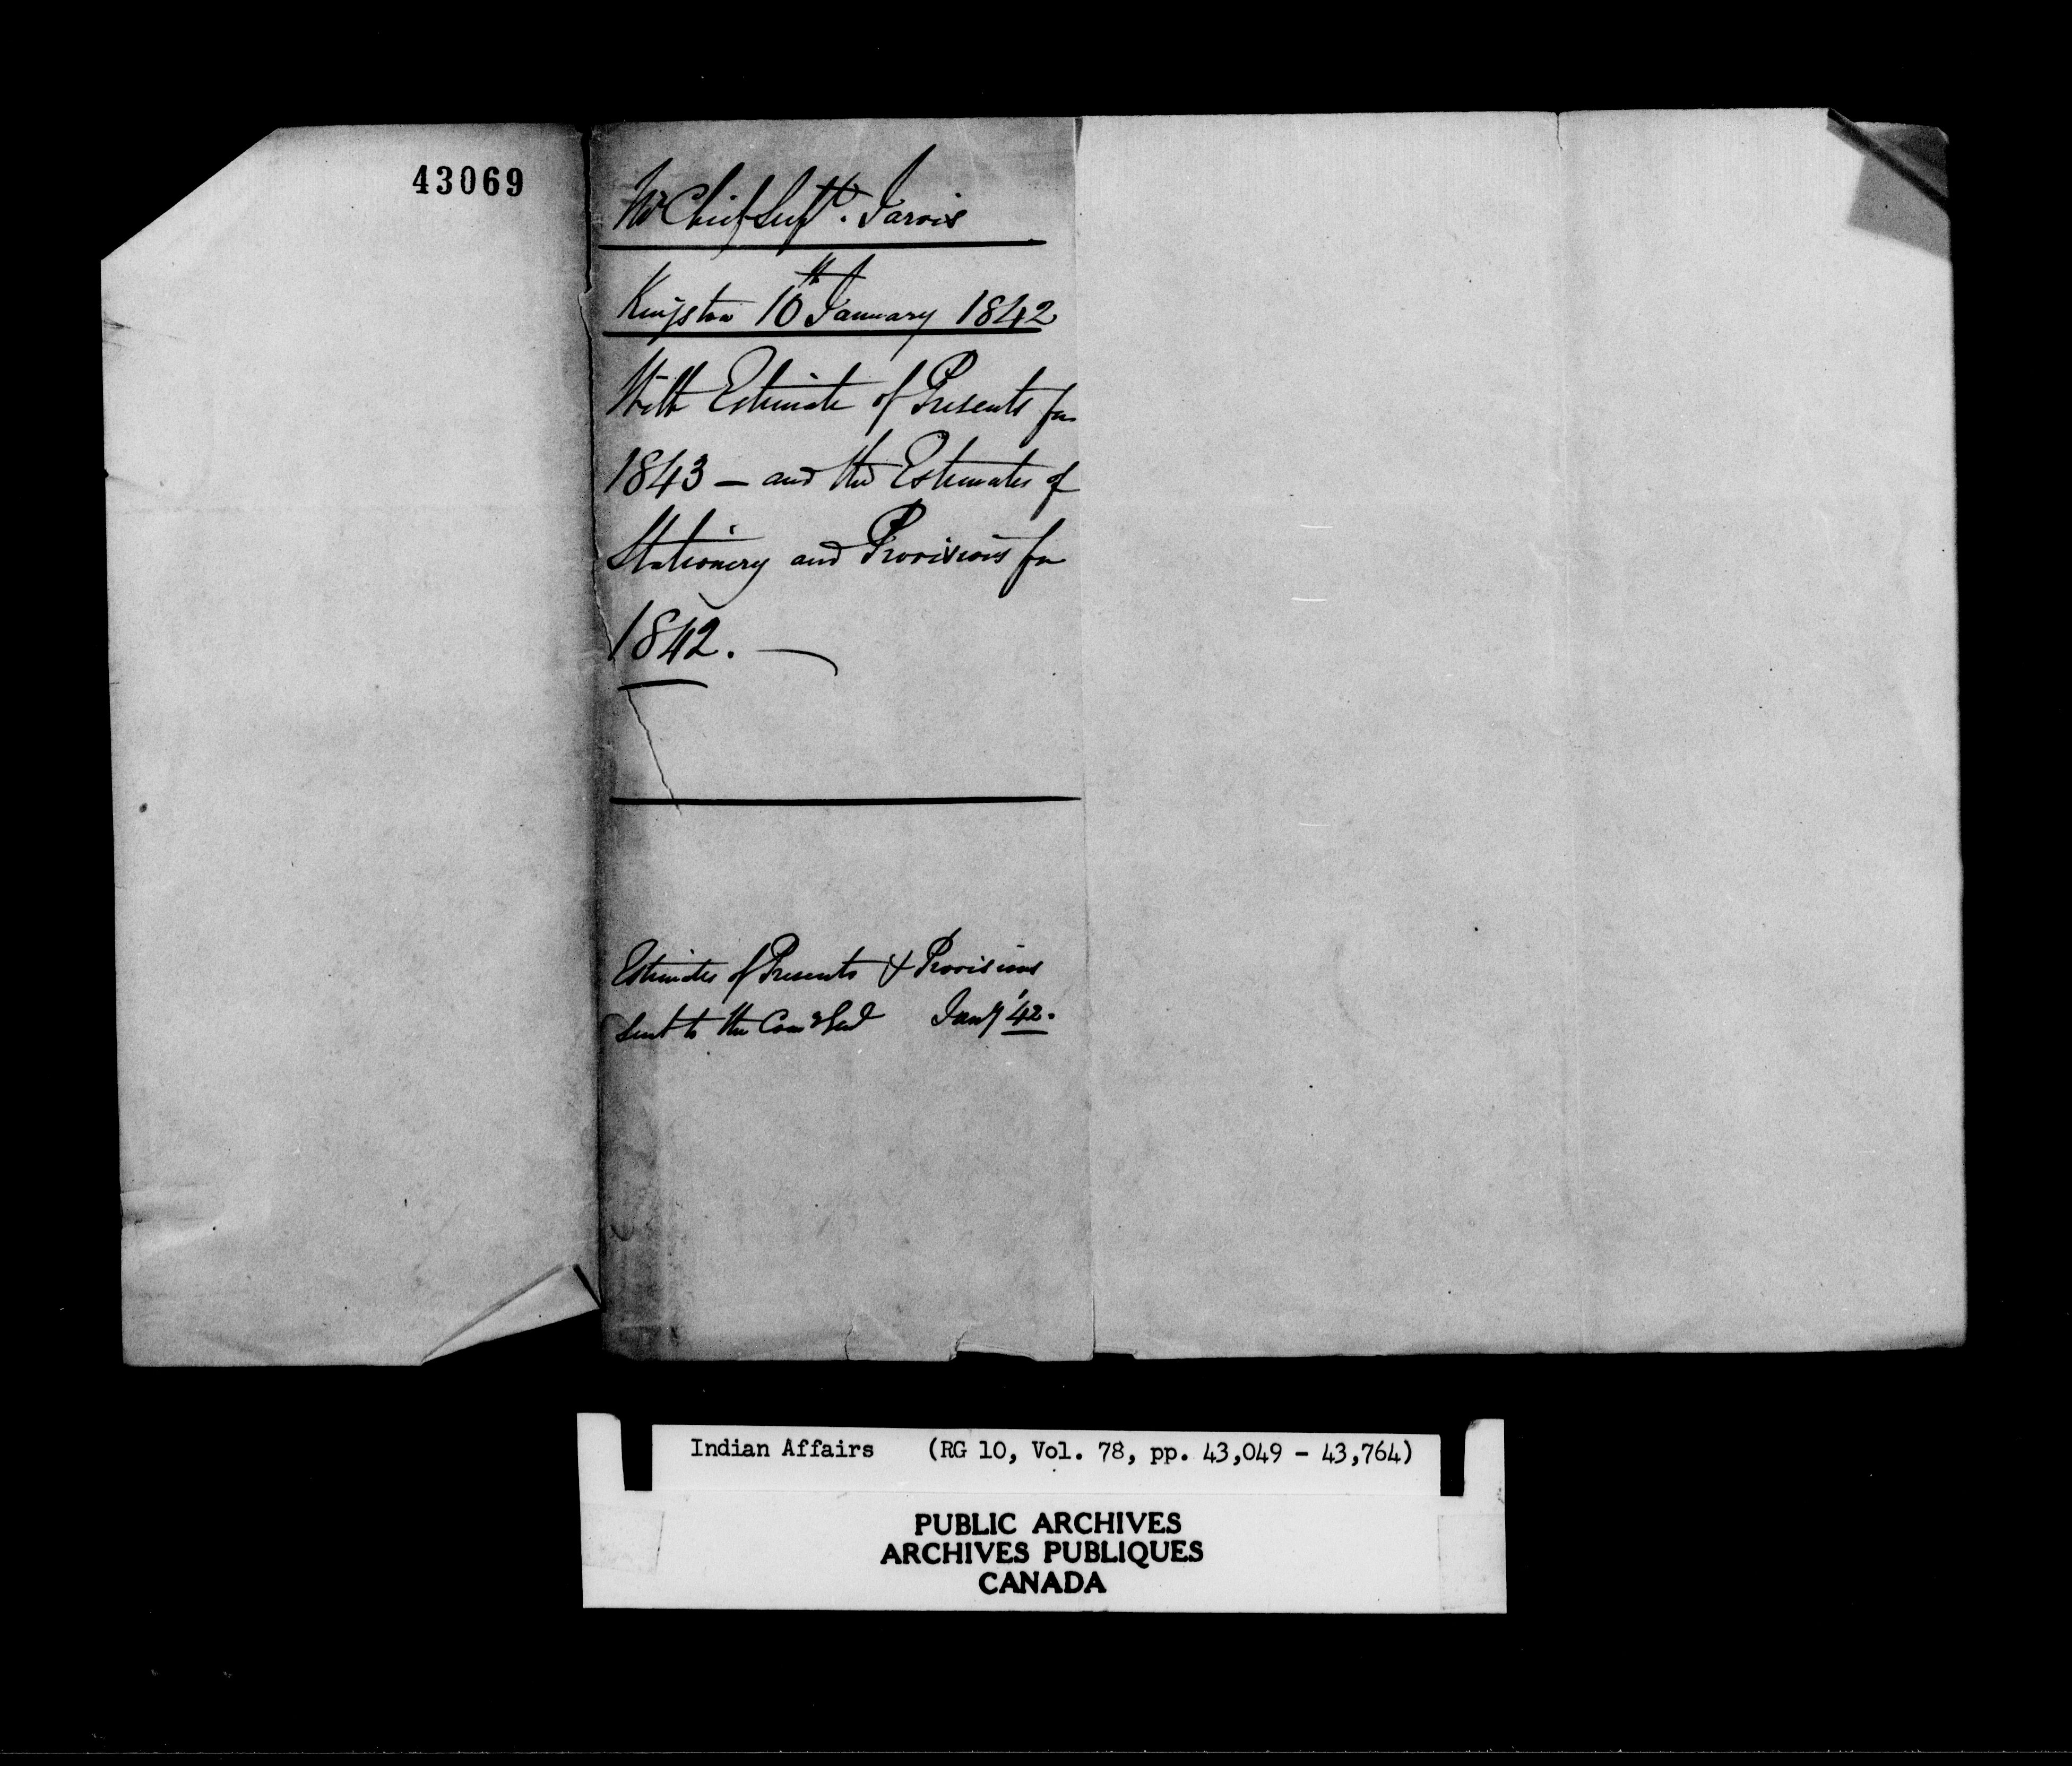 43069
Mr Chief Supt. Jarvis
Kingston 10th January 1842
With Estimate of Presents for
1843 — and the Estimates of
Stationery and Provisions for
1842. —
Estimates of Presents & Provisions
sent to the Jany '42.
Indian Affairs (RG 10, Vol. 78, pp. 43,049 - 43,764)
PUBLIC ARCHIVES
ARCHIVES PUBLIQUES
CANADA